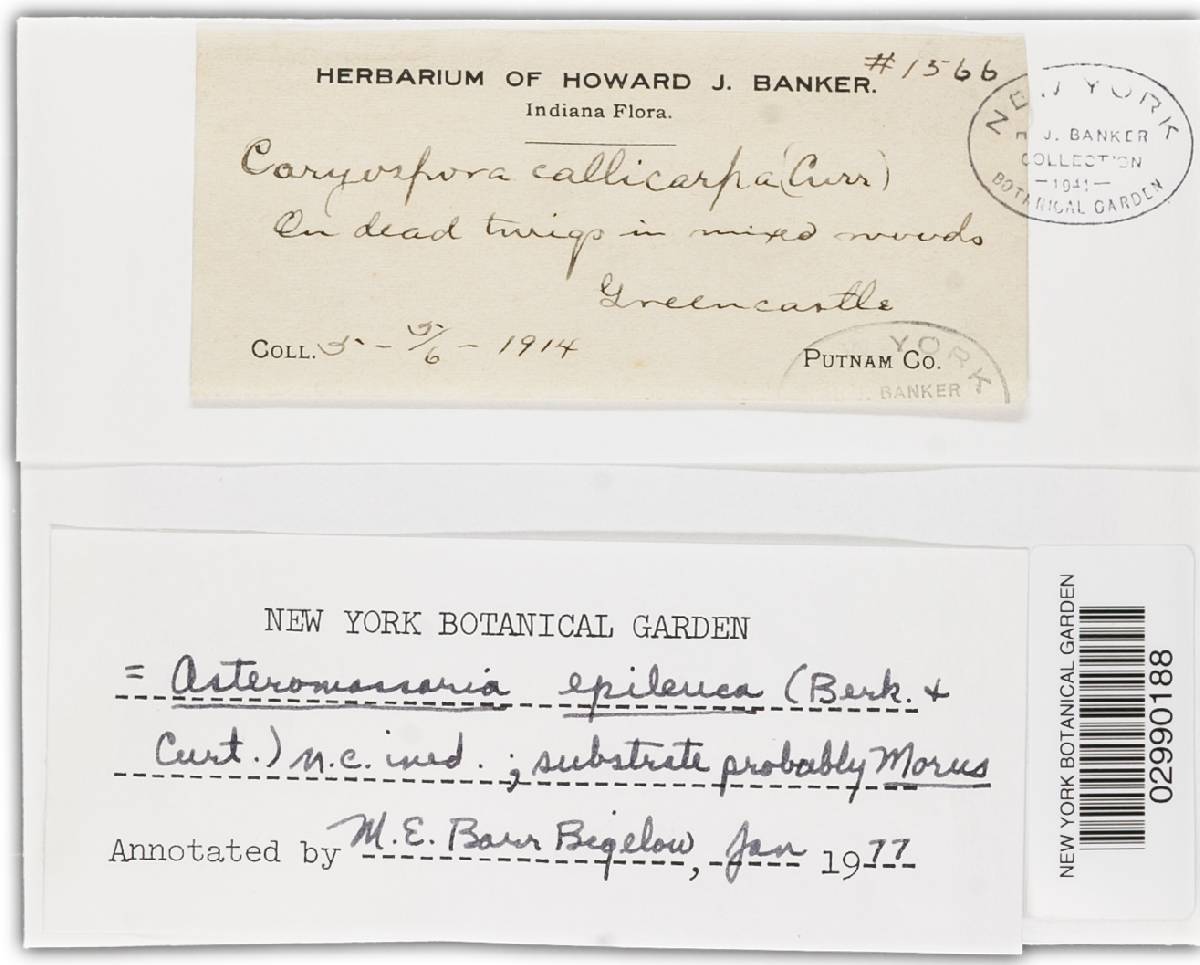 #1566
HERBARIUM OF HOWARD J. BANKER.
Indiana Flora.
Caryospora callicarpa (Curr)
On dead twigs in mixed woods
Greencastle
COLL. 5 - 5/6 - 1914
PUTNAM CO.
NEW YORK
J. BANKER
COLLECTION
-1941-
BOTANICAL GARDEN
YORK
J. BANKER
NEW YORK BOTANICAL GARDEN
= Asteromassaria epileuca (Berk. +
Curt.) n.c. ined. ; substrate probably Morus
Annotated by M.E. Barr Bigelow, Jan 1977
NEW YORK BOTANICAL GARDEN
02990188